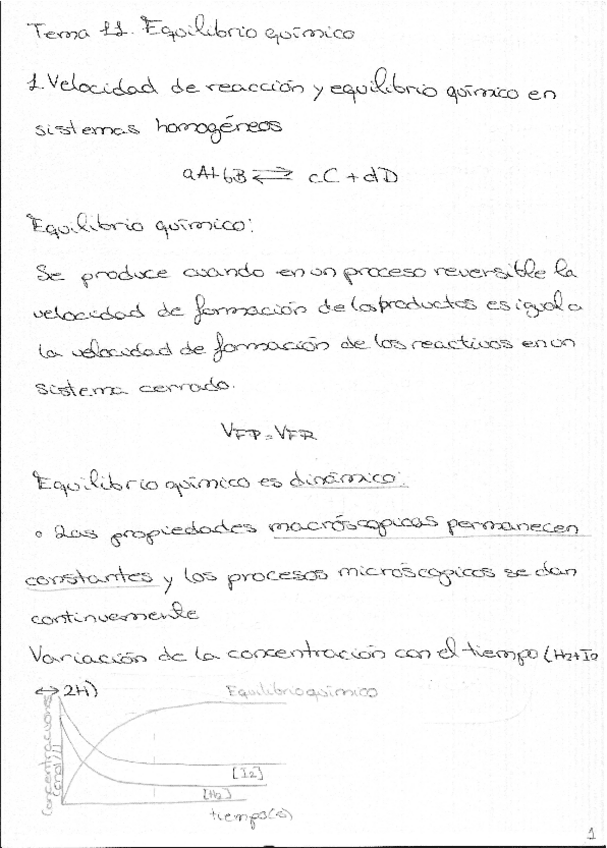 Tema 11. Equilibrio químico
1. Velocidad de reacción y equilibrio químico en
sistemas homogéneos
aA+bB ⇄ cC+dD
Equilibrio químico:
Se produce cuando en un proceso reversible la
velocidad de formación de los productos es igual a
la velocidad de formación de los reactivos en un
sistema cerrado.
VFP=VFR
Equilibrio químico es dinámico:
∘ Las propiedades macróscopicas permanecen
constantes y los procesos microscópicos se dan
continuamente
Variación de la concentración con el tiempo (H2+I2
↔ 2HI)
Equilibrio químico
Concentraciones
(mol/l)
[I2]
[H2]
tiempo(s)
1